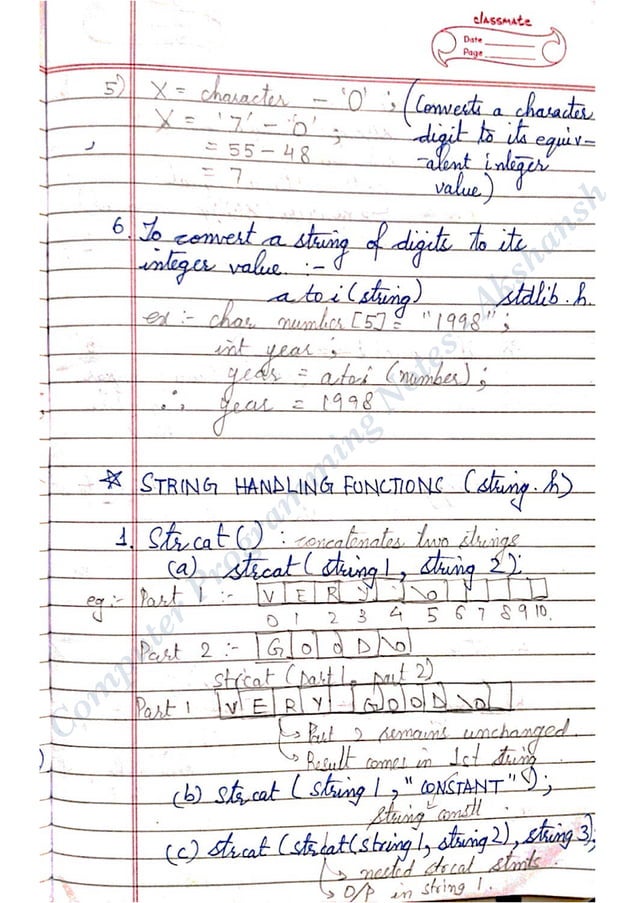 classmate
Date
Page
5) X = character - '0' ; (Converts a character
X = '7' - '0' ; digit to its equiv-
= 55 - 48 -alent integer
= 7 value)
6. To convert a string of digits to its
integer value :-
atoi (string) stdlib.h.
ex :- char number [5] = "1998" ;
int year ;
year = atoi (number) ;
∴ year = 1998
☆ STRING HANDLING FUNCTIONS (string.h)
1. Strcat() : concatenates two strings
(a) strcat (string 1, string 2);
eg:- Part 1 :- V E R Y \0
0 1 2 3 4 5 6 7 8 9 10.
Part 2 :- G O O D \0
strcat (part 1, part 2)
Part 1 V E R Y G O O D \0
↳ Part 2 remains unchanged.
↳ Result comes in 1st string
(b) strcat (string 1, "CONSTANT");
string constt.
(c) strcat (strcat (string 1, string 2), string 3);
↳ nested strcat stmts.
↳ O/P in string 1.
Computer Programming Notes Akshansh